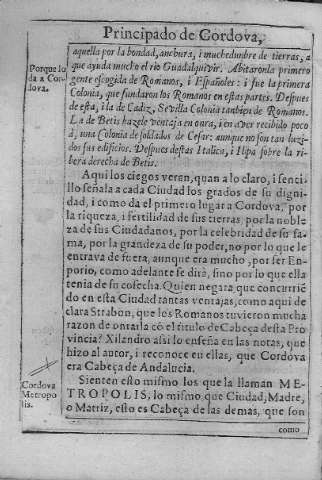 Principado de Cordova,
aquella por la bondad, anchura, i muchedumbre de tierras, a
que ayuda mucho el rio Guadalquivir. Abitaronla primero
Porque lo
da a Cor-
dova.
gente escogida de Romanos, i Españoles: i fue la primera
Colonia, que fundaron los Romanos en estas partes. Despues
de esta, i la de Cadiz, Sevilla Colonia tanbien de Romanos.
La de Betis hazele ventaja en onra, i en aver recibido poco
à, una Colonia de soldados de Cesar: aunque no son tan luzi-
dos sus edificios. Despues destas Italica, i Ilipa sobre la ri-
bera derecha de Betis.
Aqui los ciegos veren, quan a lo claro, i senci-
llo señala a cada Ciudad los grados de su digni-
dad, i como da el primero lugar a Cordova, por
la riqueza, i fertilidad de sus tierras, por la noble
za de sus Ciudadanos, por la celebridad de su fa-
ma, por la grandeza de su poder, no por lo que le
entrava de fuera, aunque era mucho, por ser En-
porio, como adelante se dirà, sino por lo que ella
tenia de su cosecha. Quien negara, que concurriē
do en esta Ciudad tantas ventajas, como aqui de
clara Strabon, que los Romanos tuvieron mucha
razon de onrarla cō el titulo de Cabeça desta Pro
vincia? Xilandro assi lo enseña en las notas, que
hizo al autor, i reconoce en ellas, que Cordova
era Cabeça de Andalucia.
Cordova
Metropo
lis.
Sienten esto mismo los que la llaman ME-
TROPOLIS, lo mismo que Ciudad, Madre,
o Matriz, esto es Cabeça de las demas, que son
como